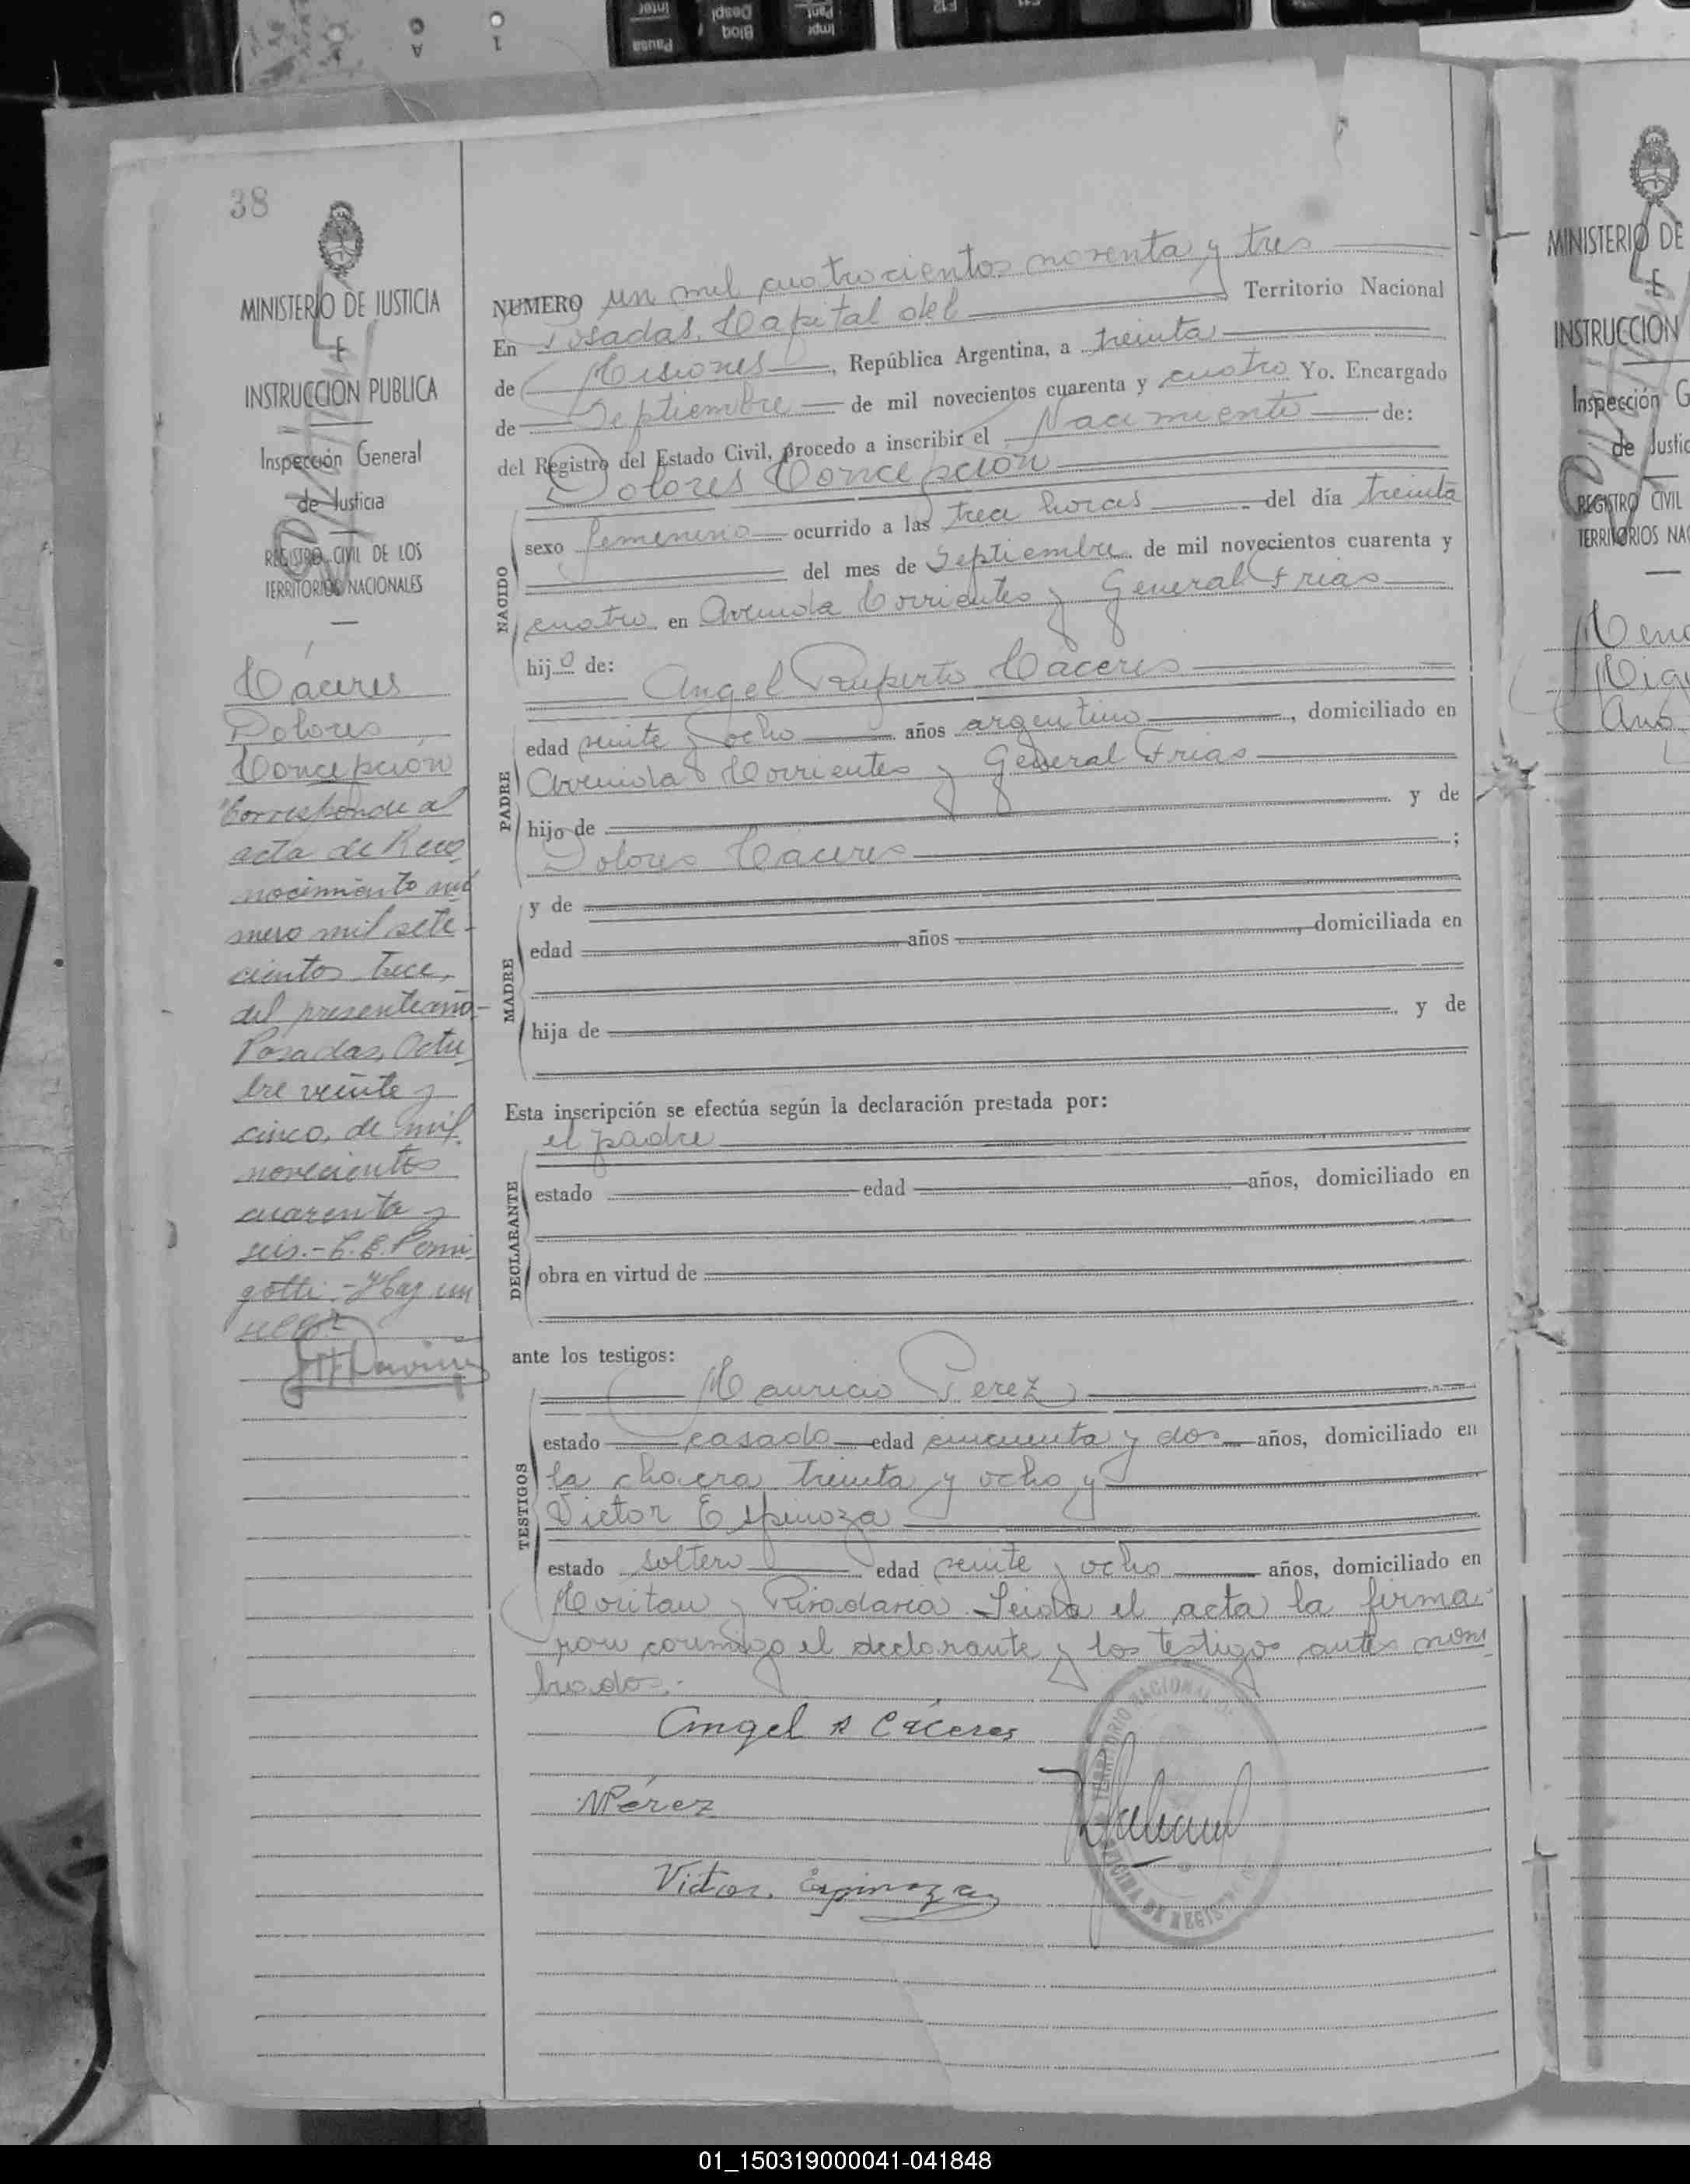 38
MINISTERIO DE JUSTICIA
E
INSTRUCCION PUBLICA
Inspección General
de Justicia
REGISTRO CIVIL DE LOS
TERRITORIOS NACIONALES
Cáceres
Dolores
Concepción
Corresponde al
acta de Reco
nocimiento nú
mero mil sete-
cientos trece,
del presente año-
Posadas, Octu
bre veinte y
cinco, de mil
novecientos
cuarenta y
seis.- C. E. Pomi
gotti.- Hay un
sello.
NUMERO un mil cuatrocientos noventa y tres
En Posadas, Capital del Territorio Nacional
de Misiones, República Argentina, a treinta
de Septiembre de mil novecientos cuarenta y cuatro Yo. Encargado
del Registro del Estado Civil, procedo a inscribir el Nacimiento de:
Dolores Concepción
NACIDO
sexo femenino ocurrido a las trea horas del día treinta
del mes de Septiembre de mil novecientos cuarenta y
cuatro en Avenida Corrientes y General Frias
hija de:
Angel Ruperto Cáceres
PADRE
edad veinte y ocho años argentino, domiciliado en
Avenida Corrientes y General Frias
hijo de y de
Dolores Cáceres;
MADRE
y de
edad años, domiciliada en
hija de y de
Esta inscripción se efectúa según la declaración prestada por:
el padre
DECLARANTE
estado edad años, domiciliado en
obra en virtud de
ante los testigos:
Mauricio Perez
TESTIGOS
estado casado edad cincuenta y dos años, domiciliado en
la chacra treinta y ocho y
Victor Espinoza
estado soltero edad veinte y ocho años, domiciliado en
y Rivadavia. Leida el acta la firma
ron conmigo el declarante y los testigos antes nom
brados.-
Angel R Cáceres
MPérez
Victor. Espinoza
TERRITORIO NACIONAL DE
OFICINA DE REGISTRO
MINISTERIO DE
E
INSTRUCCION
Inspección G
de Justic
REGISTRO CIVIL
TERRITORIOS NA
Impr
Pant
Bloq
Despl
Pausa
Inter
F12
F11
1
A
01_150319000041-041848